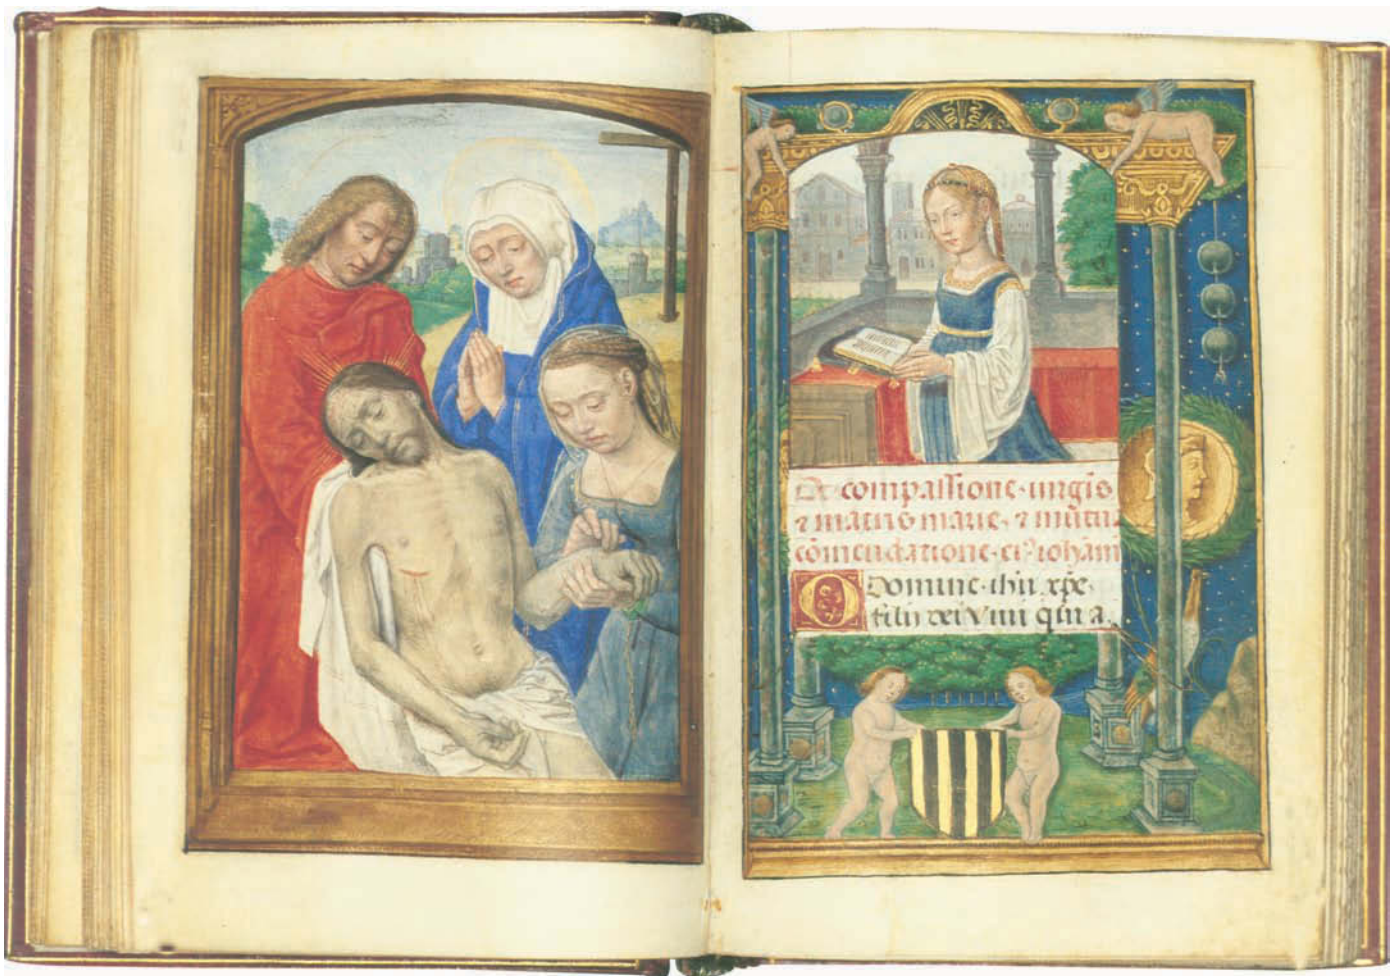 De compassione virgis
⁊ matris marie ⁊ mutu
cōmendatione eiꝰ iohani
O Domine ihū xp̄e
filij dei viui qui a